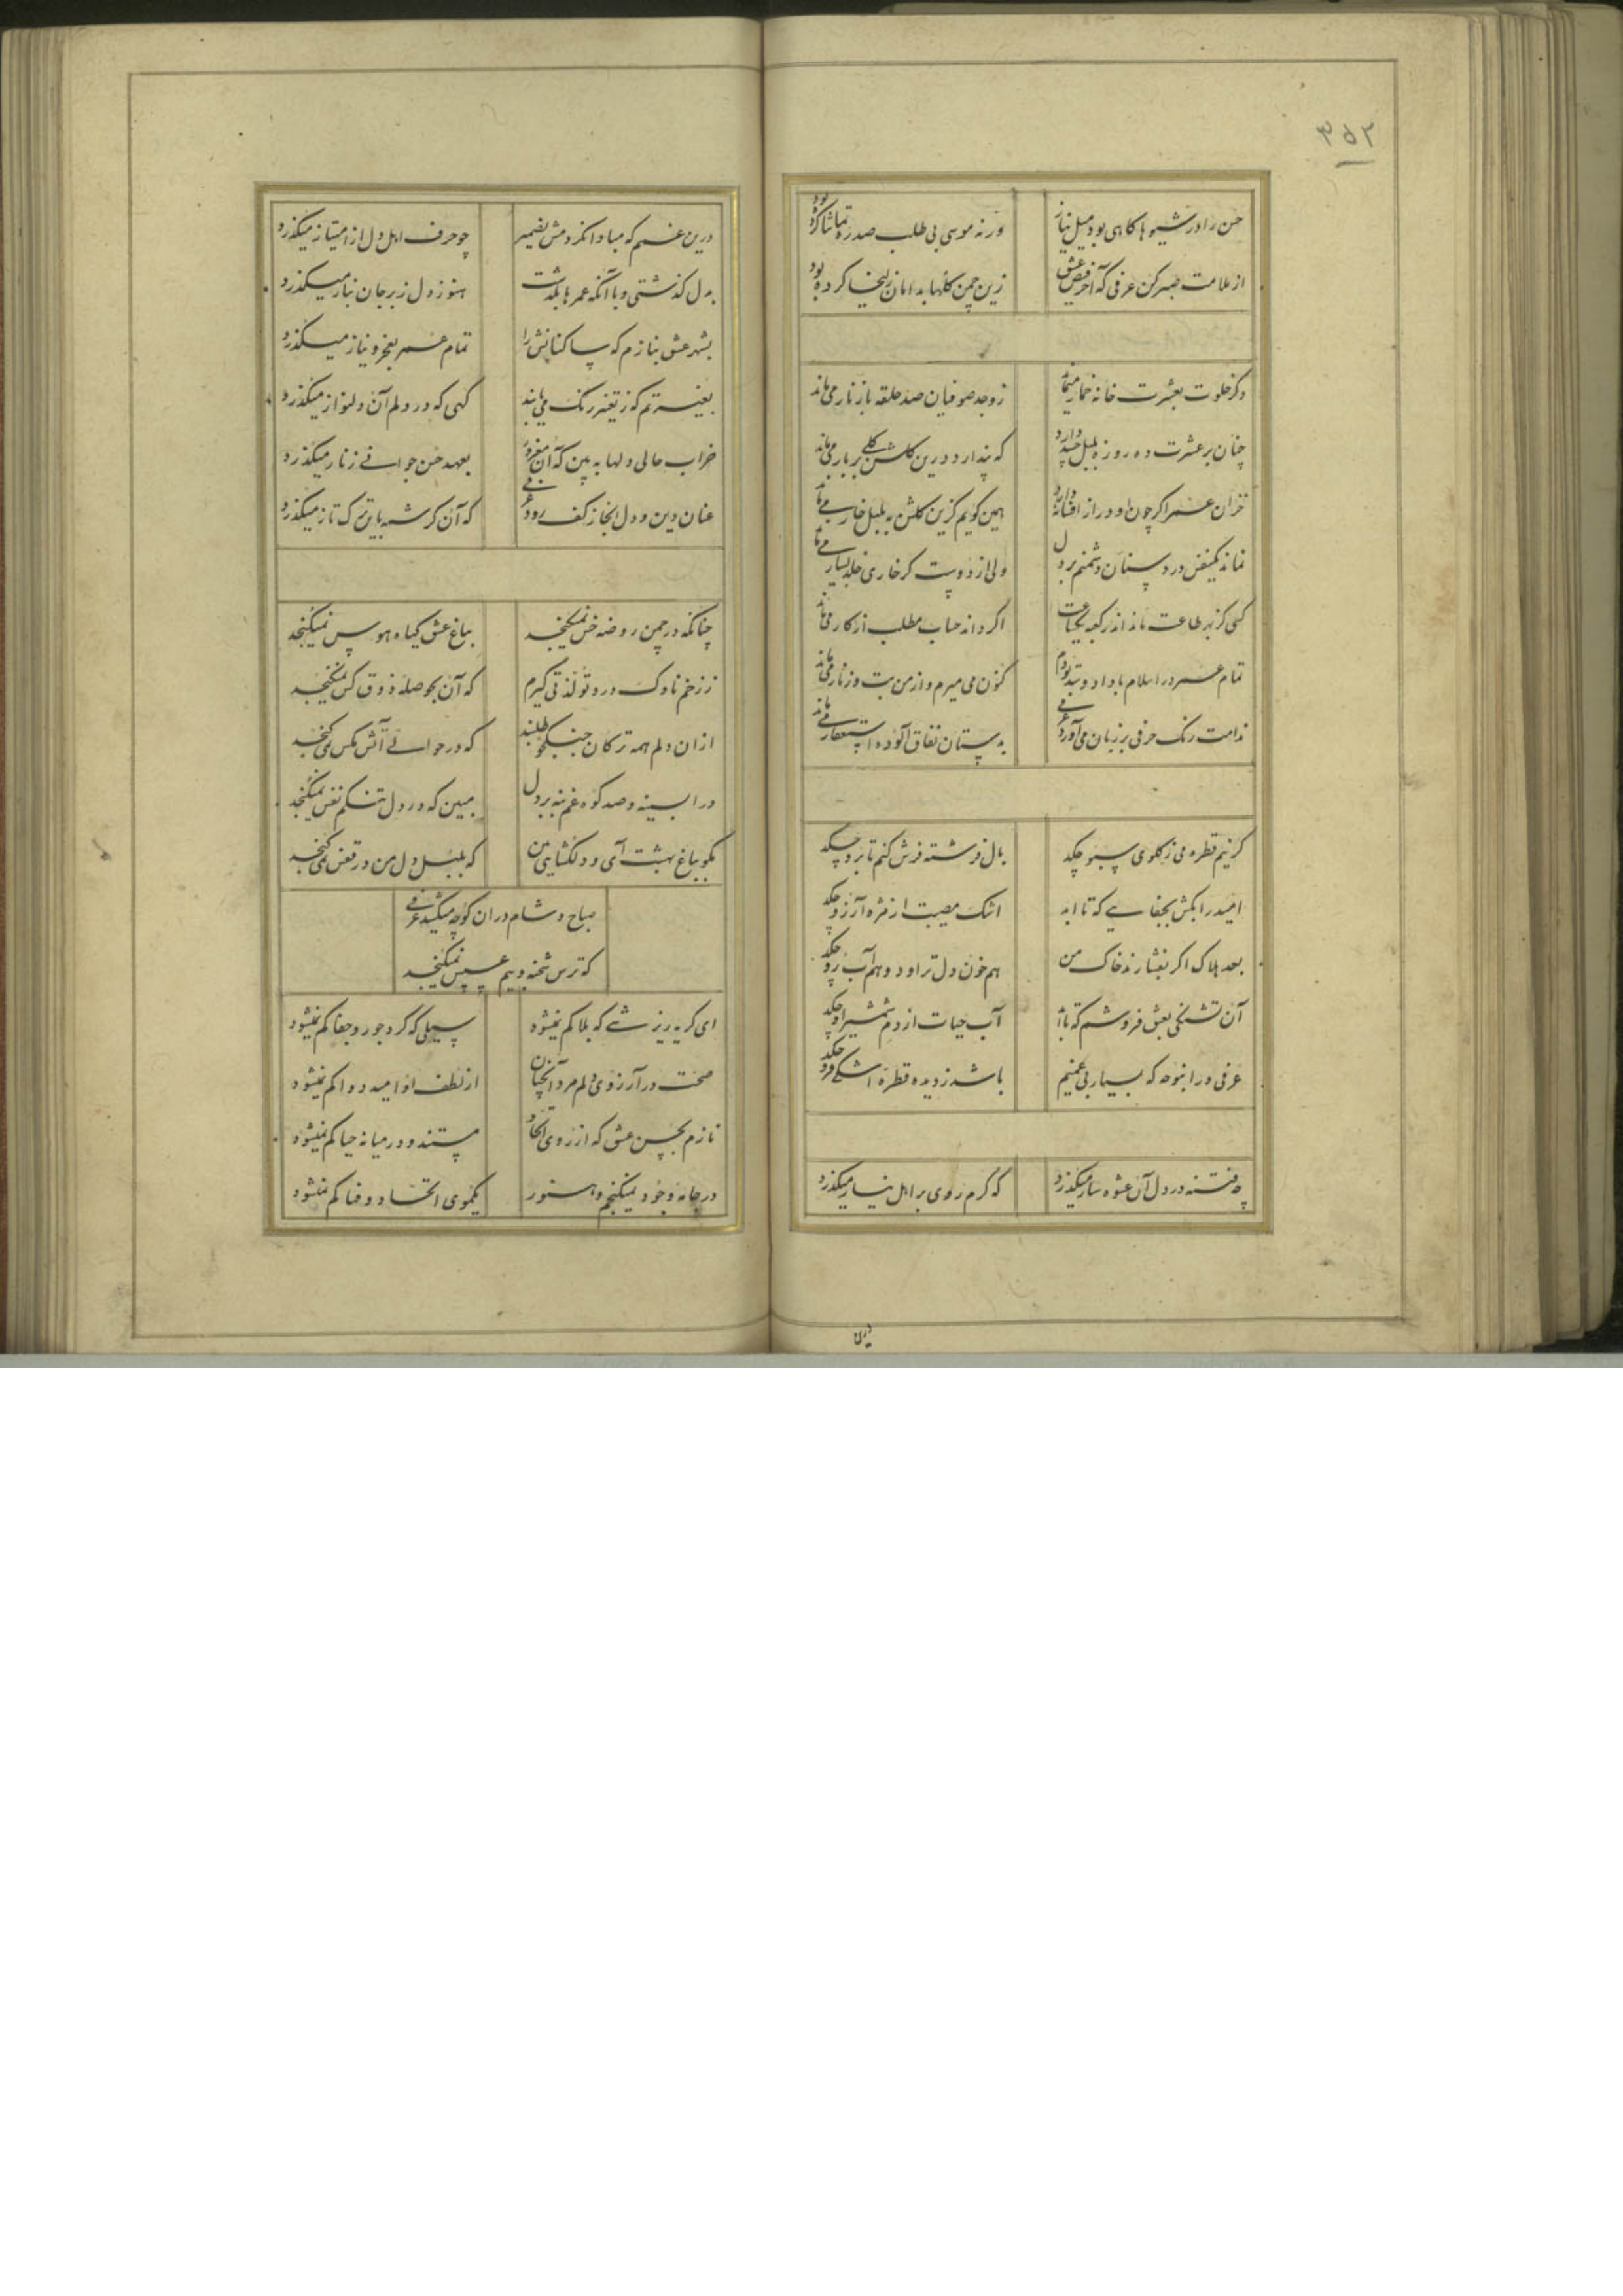 ۳۵۲
حسن را در شیوها کاهی بود میل نیاز ورنه موسی بی طلب صد ره تماشا کرده بود
از ملامت صبر کن عرفی که آخر فیض عشق زین چمن کلها بدامان زلیخا کرده بود
دکر خلوت بعشرت خانه خمار میماند ز وجد صوفیان صد حلقه با زنار می ماند
چنان بر عشرت ده روزه بلبل حسد دارد که پندارد درین کلشن کلی بر بار می ماند
خزان عمر اکر چون او دراز افسانه دارد همین کویم کزین کلشن به بلبل خار می ماند
نماند یکنفس در دوستان دشمنم بر دل ولی از دوست کر خاری خلد بسیار می ماند
کسی کز بهر طاعت ماند اندر کعبه اکر داند حساب مطلب از کار می ماند
تمام عمر در اسلام با داد و ستد بودم کنون می میرم و از من بت و زنار می ماند
ندامت رنک حرفی بر زبان می آورد عرفی بدستان نفاق آلوده استغفار می ماند
کر نیم قطره می ز کلوی سبو چکد بال فرشته فرش کنم تا برو چکد
امید را بکش بجفایی که تا ابد اشک مصیبت از مژه آرزو چکد
بعد هلاک اکر بفشارند خاک من هم خون دل تراود و هم آب رو چکد
آن تشنکی بعشق فروشم که آب حیات از دم شمشیر او چکد
عرفی در ابنوحه که بسیار بی غمیم باشد ز دیده قطره اشکی فرو چکد
چه فتنه در دل آن عشوه ساز میکذرد که کرم روی بر اهل نیاز میکذرد
درین
درین غمم که مبادا نکرد مش بضمیر چو حرف اهل دل از امتیاز میکذرد
بدل کذشتی و با آنکه عمرها بکذشت هنوز دل ز بر جان نیاز میکذرد
بشهر عشق بنازم که ساکنانش را تمام عمر بعجز و نیاز میکذرد
بغیرتم که ز تغییر رنک می یابند کهی که در دلم آن دلنواز میکذرد
خراب حالی دلها به بین که آن مغرور بعهد حسن جوانی ز ناز میکذرد
عنان دین و دل اینجا ز کف رود عرفی که آن کرشمه باین ترک تاز میکذرد
چنانکه در چمن روضه خس نمیکنجد بباغ عشق کیاه هوس نمیکنجد
ز زخم ناوک درد تو لذتی کیرم که آن بحوصله ذوق کس نمیکنجد
از ان دلم همه ترکان جنکجو طلبند که در حوالی آتش مکس نمی کنجد
در ا بسینه و صد کوه غم بنه بر دل مبین که در دل تنکم نفس نمیکنجد
بکو بباغ بهشت آی و دلکشایی من که بلبل دل من در قفس نمی کنجد
صباح و شام در ان کوچه میکشد عرفی
که ترس شحنه و بیم عسس نمیکنجد
ای کریه ریزشی که بلا کم نمیشود سیلی که کرد جور و جفا کم نمیشود
صحت در آرزوی دلم مرد آنچنان از لطف او امید دوا کم نمیشود
نازم بحسن عشق که از روی اتحاد مستند و در میانه حیا کم نمیشود
در جامه وجود نمیکنجم و هنوز یکموی اتحاد و وفا کم نمیشود